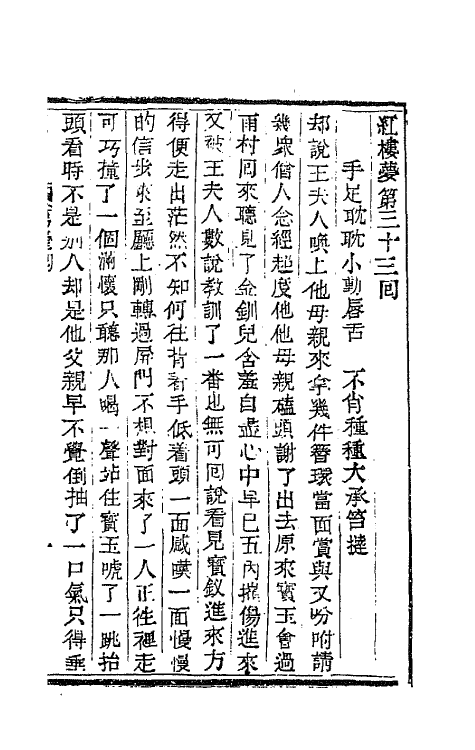 紅樓夢第三十三回
手足耽耽小動唇舌　不肖種種大承笞撻
却說王夫人喚上他母親來拿幾件簪環當面賞與又吩咐請
幾衆僧人念經超度他他母親磕頭謝了出去原來寶玉會過
雨村回來聽見了金釧兒含羞自盡心中早已五內摧傷進來
又被王夫人數說教訓了一番也無可回說看見寶釵進來方
得便走出茫然不知何往背着手低着頭一面感嘆一面慢慢
的信步來至廳上剛轉過屏門不想對面來了一人正往裡走
可巧撞了一個滿懷只聽那人喝一聲站住寶玉唬了一跳抬
頭看時不是別人却是他父親早不覺倒抽了一口氣只得垂